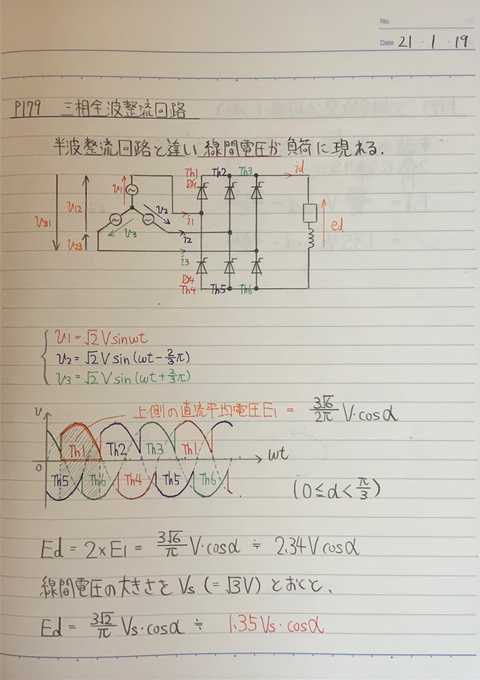 No.
Date 21・1・19
P179 三相全波整流回路
半波整流回路と違い線間電圧が負荷に現れる.
Th1 Th2 Th3 id
D1
v31 v12 v1 v2 i1 ed
v23 v3 i2
i3
D4
Th4 Th5 Th6
v1 = √2 V sin ωt
v2 = √2 V sin (ωt - 2/3 π)
v3 = √2 V sin (ωt + 2/3 π)
v 上側の直流平均電圧E1 = 3√6/2π V・cosα
Th1 Th2 Th3 Th1 ωt
0
Th5 Th6 Th4 Th5 Th6 (0≦α<π/3)
Ed = 2×E1 = 3√6/π V・cosα ≒ 2.34V cosα
線間電圧の大きさを Vs (=√3V) とおくと、
Ed = 3√2/π Vs・cosα ≒ 1.35 Vs・cosα